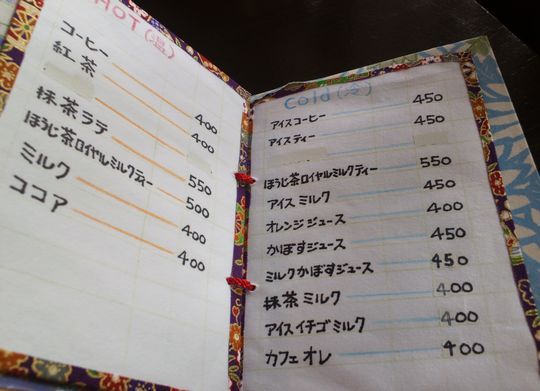 HOT (温)
コーヒー 400
紅茶 400
抹茶ラテ 550
ほうじ茶ロイヤルミルクティー 500
ミルク 400
ココア 400
Cold (冷)
アイスコーヒー 450
アイスティー 450
ほうじ茶ロイヤルミルクティー 550
アイスミルク 450
オレンジジュース 400
かぼすジュース 450
ミルクかぼすジュース 450
抹茶ミルク 400
アイスイチゴミルク 400
カフェオレ 400